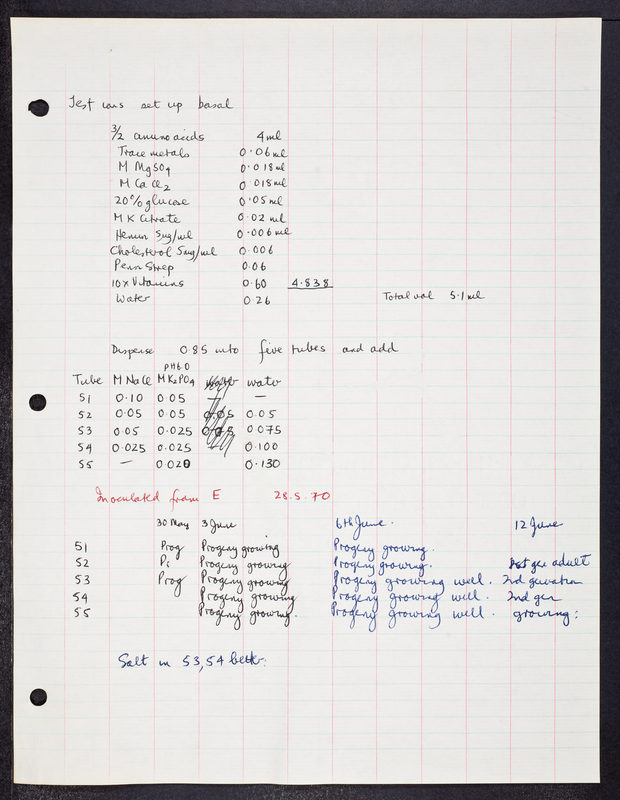 Test ions set up basal
3/2 amino acids 4 ml
Trace metals 0.06 ml
M MgSO4 0.018 ml
M CaCl2 0.018 ml
20% glucose 0.05 ml
M K Citrate 0.02 ml
Hemin 5mg/ml 0.006 ml
Cholesterol 5mg/ml 0.006
Penn Strep 0.06
10x Vitamins 0.60 4.838
Water 0.26 Total vol 5.1 ml
Dispense 0.85 into five tubes and add
pH6.0
Tube M NaCl M K2PO4 water water
51 0.10 0.05 — —
52 0.05 0.05 0.05 0.05
53 0.05 0.025 0.075 0.075
54 0.025 0.025 — 0.100
55 — 0.020 0.130
Inoculated from E 28.5.70
30 May 3 June 6th June. 12 June
51 Prog Progeny growing Progeny growing.
52 Pi Progeny growing Progeny growing. 1st gen adult
53 Prog Progeny growing Progeny growing well. 2nd generation
54 Progeny growing Progeny growing well. 2nd gen
55 Progeny growing. Progeny growing well. growing:
Salt in 53, 54 best.